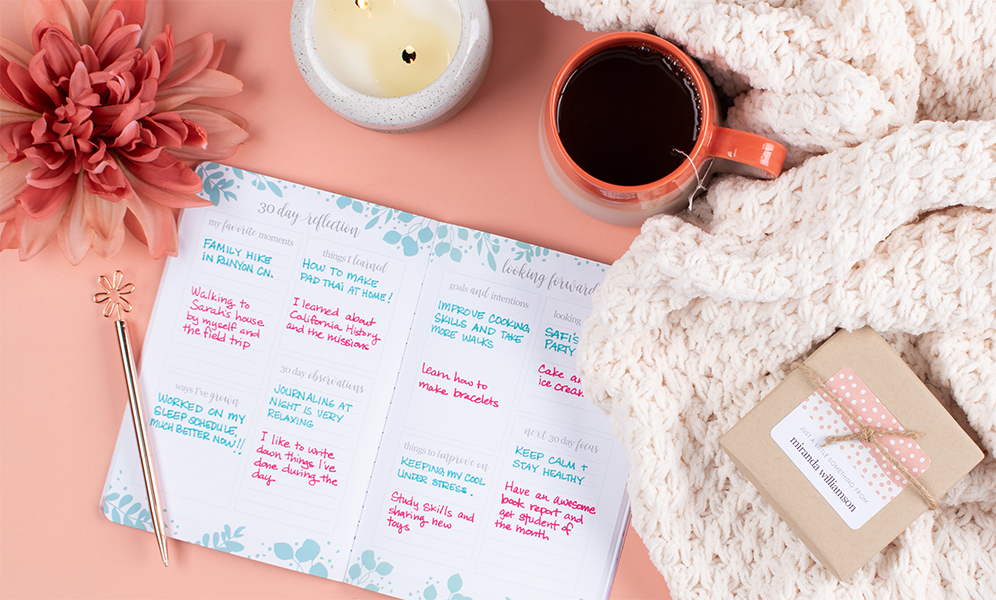 30 day reflection
my favorite moments
FAMILY HIKE
IN RUNYON CN.
Walking to
Sarah's house
by myself and
the field trip
things I learned
HOW TO MAKE
PAD THAI AT HOME!
I learned about
California History
and the missions
ways I've grown
WORKED ON MY
SLEEP SCHEDULE,
MUCH BETTER NOW!!
30 day observations
JOURNALING AT
NIGHT IS VERY
RELAXING
I like to write
down things I've
done during the
day
looking forward
goals and intentions
IMPROVE COOKING
SKILLS AND TAKE
MORE WALKS
learn how to
make bracelets
looking
SAFI'S
PARTY
Cake an
ice cream
things to improve on
KEEPING MY COOL
UNDER STRESS.
Study Skills and
sharing new
toys
next 30 day focus
KEEP CALM +
STAY HEALTHY
Have an awesome
book report and
get student of
the month
JUST A LITTLE SOMETHING FROM
miranda williamson